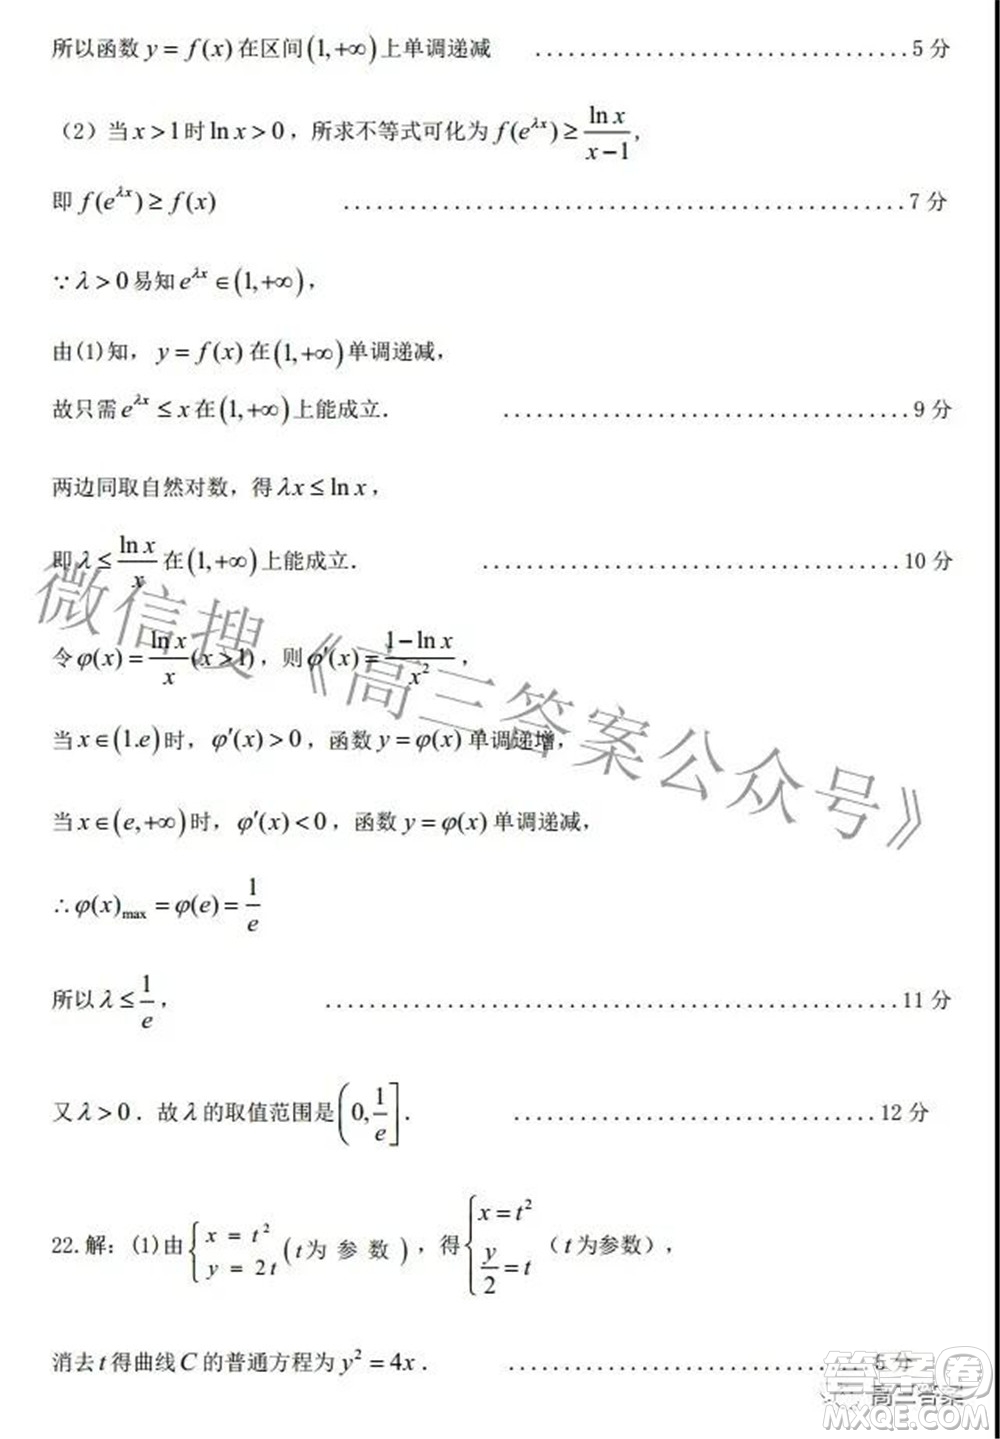 所以函数 y = f(x) 在区间 (1,+∞) 上单调递减 ………………5 分
(2) 当 x > 1 时 ln x > 0 , 所求不等式可化为 f(e^{λx}) ≥ \frac{ln x}{x−1} ,
即 f(e^{λx}) ≥ f(x) ………………7 分
∵ λ > 0 易知 e^{λx} ∈ (1,+∞) ,
由(1)知, y = f(x) 在 (1,+∞) 单调递减,
故只需 e^{λx} ≤ x 在 (1,+∞) 上能成立. ………………9 分
两边同取自然对数, 得 λx ≤ ln x ,
即 λ ≤ \frac{ln x}{x} 在 (1,+∞) 上能成立. ………………10 分
令 φ(x) = \frac{ln x}{x} (x > 1) , 则 φ′(x) = \frac{1−ln x}{x^2} ,
当 x ∈ (1.e) 时, φ′(x) > 0 , 函数 y = φ(x) 单调递增,
当 x ∈ (e,+∞) 时, φ′(x) < 0 , 函数 y = φ(x) 单调递减,
∴ φ(x)_{max} = φ(e) = \frac{1}{e}
所以 λ ≤ \frac{1}{e} , ………………11 分
又 λ > 0 . 故 λ 的取值范围是 (0, \frac{1}{e}] . ………………12 分
22.解: (1)由 { x = t^2 , y = 2t (t为参数) , 得 { x = t^2 , \frac{y}{2} = t (t 为参数) ,
消去 t 得曲线 C 的普通方程为 y^2 = 4x . ………………5 分
微信搜《高三答案公众号》
答案圈
高三答案
MXQE.COM